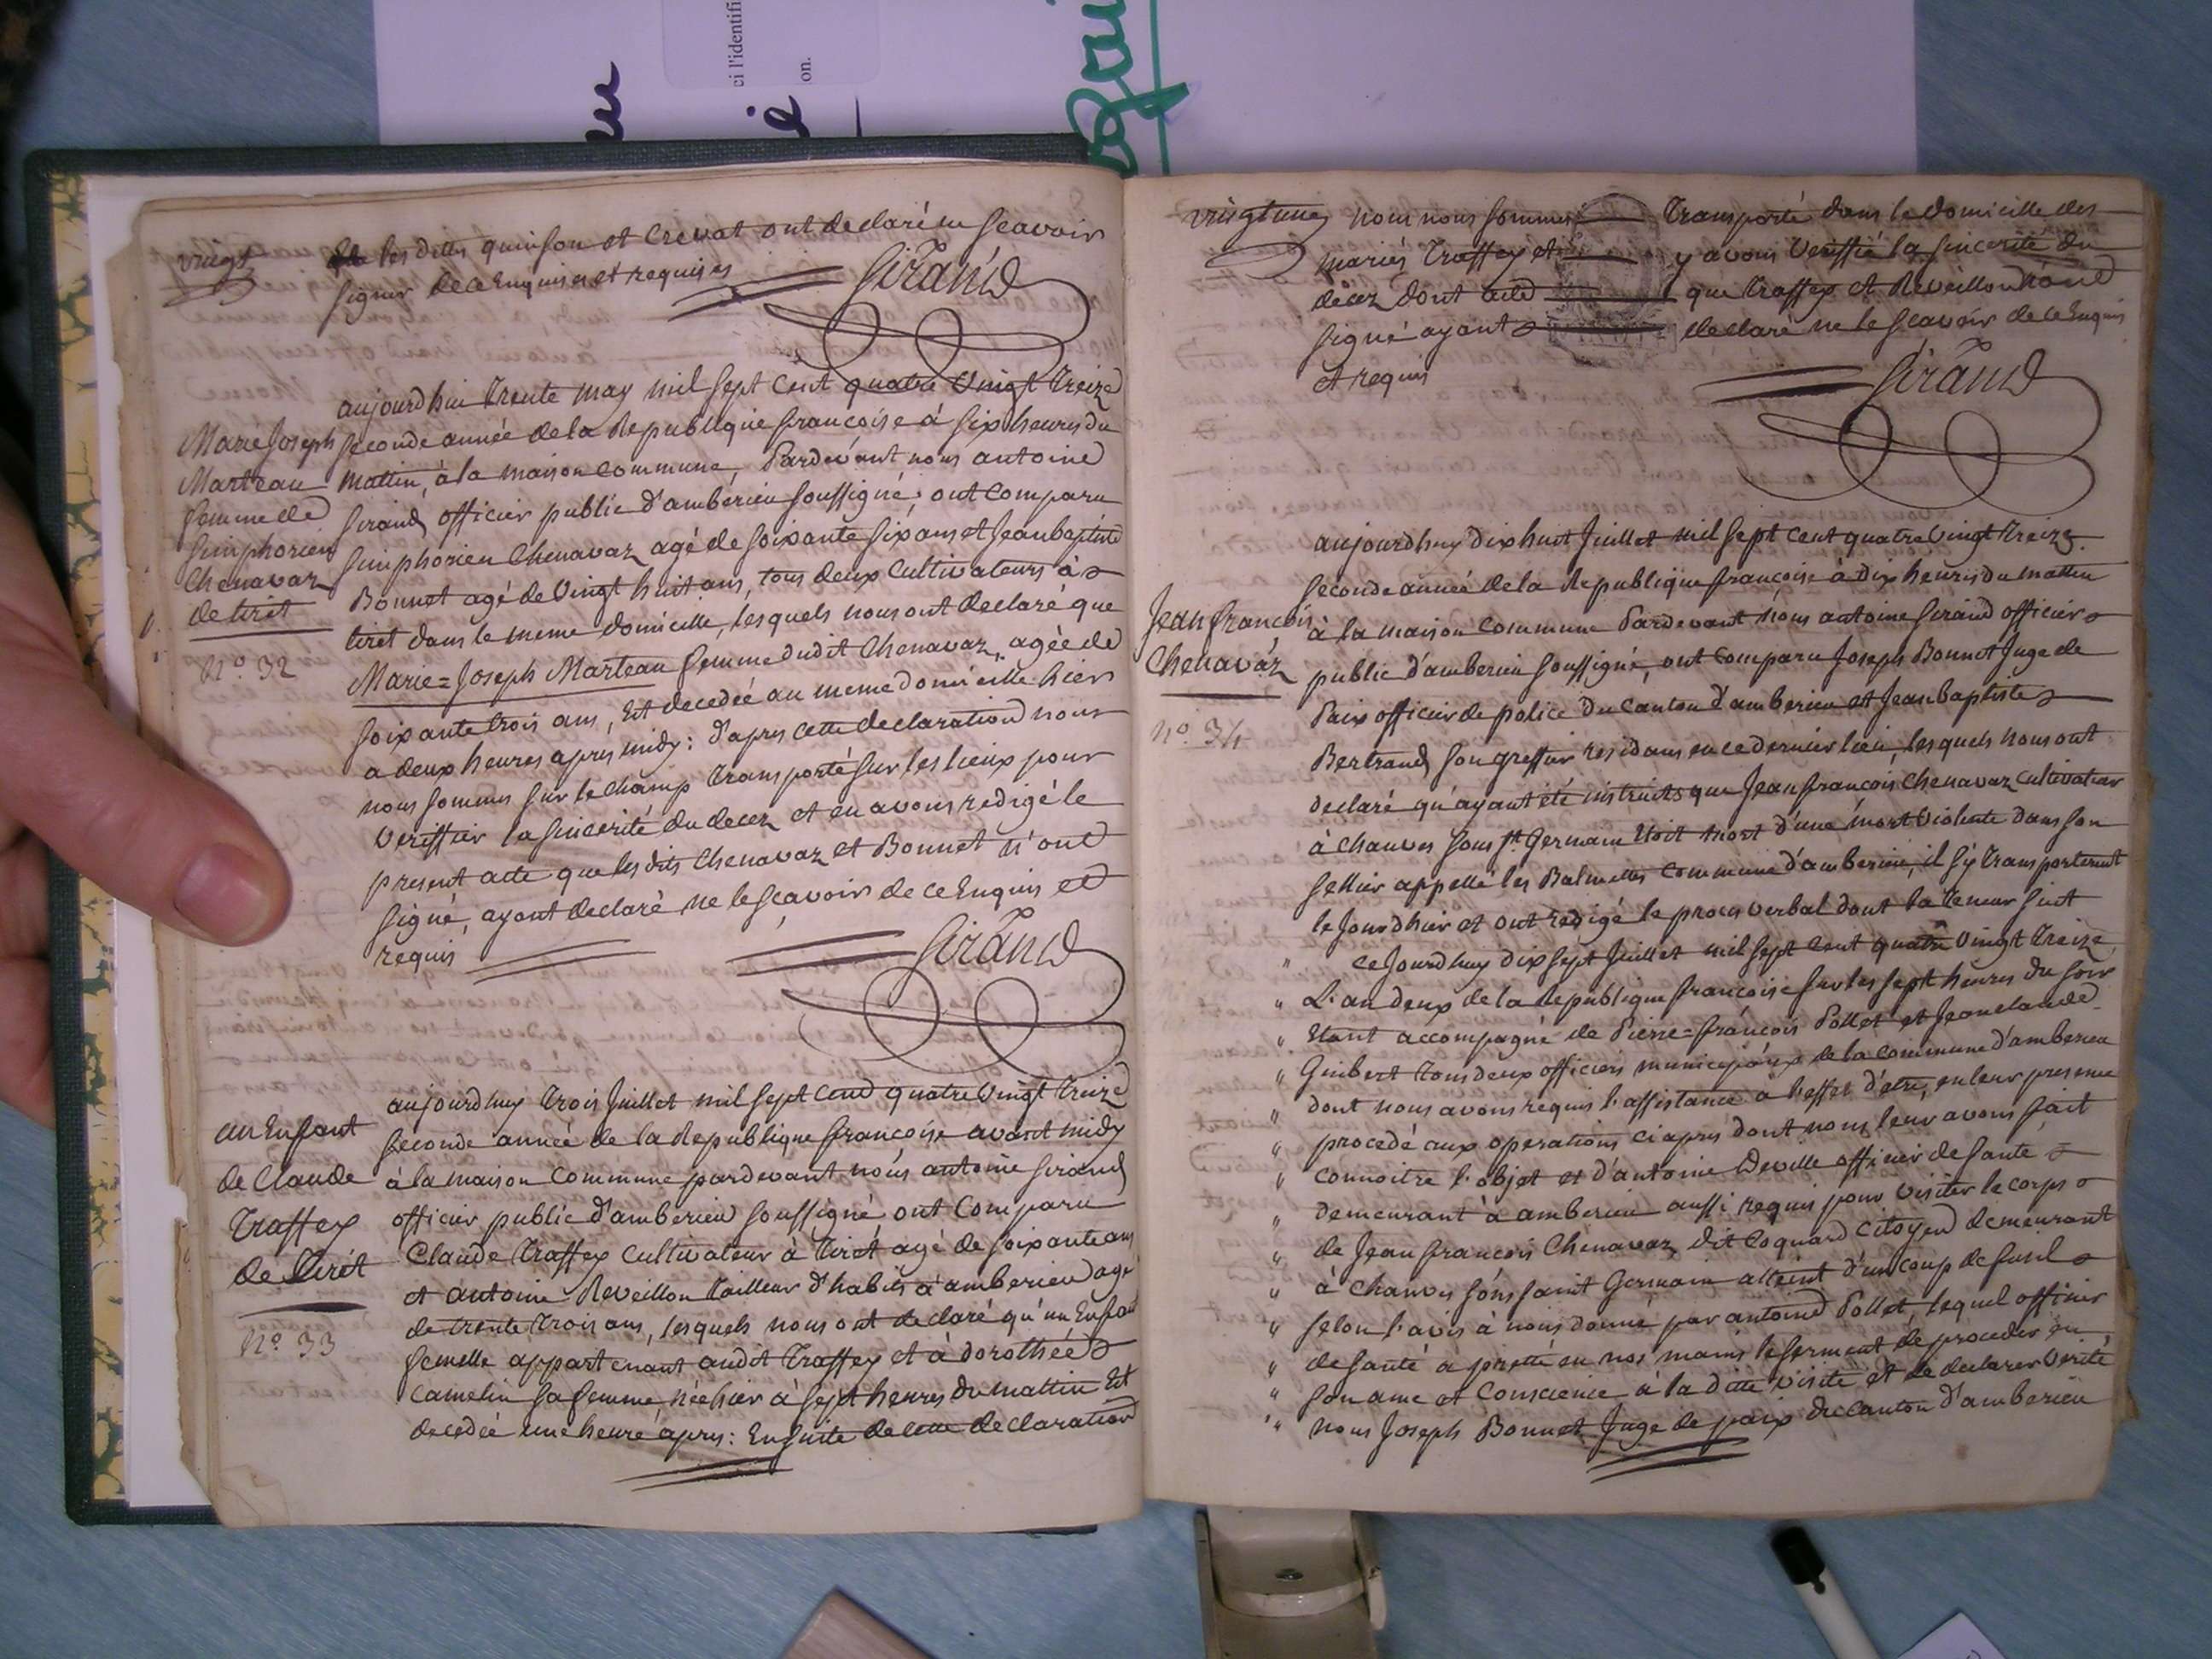 ci l'identifi
on.
vingt
les dittes quinson et Crevat ont declaré ne scavoir
signer de ce Enquises et requises
Girand
Marie Joseph
Marteau
femme de
Simphorien
Chenavaz
de tiret
N.o 32
aujourdhui trente may mil sept cent quatre vingt treize
seconde année de la Republique françoise à six heures du
mattin, à la maison commune, Pardevant nous antoine
Girand officier public d'ambérieu soussigné, ont comparu
Simphorien Chenavaz agé de soixante six ans et Jeanbaptiste
Bonnet agé de vingt huit ans, tous deux cultivateurs à
tiret dans le meme domicille, lesquels nous ont declaré que
Marie=Joseph Marteau femme dudit Chenavaz, agée de
soixante trois ans, Est decedée au meme domicille hier
a deux heures après midy: d'apres cette declaration nous
nous sommes sur le champ transporté sur les lieux pour
veriffier la sincerité du decez et en avons redigé le
present acte que les dits Chenavaz et Bonnet n'ont
signé, ayant declaré ne le scavoir de ce Enquis et
requis
Girand
un Enfant
de Claude
Traffey
de tiret
N.o 33
aujourdhuy trois Juillet mil sept cent quatre vingt treize
seconde année de la Republique françoise avant midy
à la maison commune pardevant nous antoine Girand
officier public d'amberieu soussigné ont comparu
Claude Traffey cultivateur à tiret agé de soixante ans
et antoine Reveillon tailleur d'habits à amberieu agé
de trente trois ans, lesquels nous ont declaré qu'un Enfant
femelle appartenant audit Traffey et à dorothée
camelin sa femme, née hier à sept heures du mattin Est
decedée une heure après: Ensuite de cette declaration
vingt une
nous nous sommes transporté dans le domicille des
mariés Traffey et y avons veriffié la sincerité du
décez dont acte que Traffey et Reveillon n'ont
signé ayant declaré ne le scavoir de ce Enquis
et requis
Girand
Jean françois
Chenavaz
N.o 34
aujourdhuy dix huit Juillet mil sept cent quatre vingt treize
seconde année de la Republique françoise à dix heures du mattin
à la maison commune Pardevant nous antoine Girand officier
public d'amberieu soussigné, ont comparu Joseph Bonnet Juge de
Paix officier de police du Canton d'amberieu et Jeanbaptiste
Bertrand son greffier residans en ce dernier lieu, lesquels nous ont
declaré qu'ayant été instruits que Jean françois Chenavaz cultivateur
à chauves sous St. Germain Etoit mort d'une mort violente dans son
sellier appellé les Balmettes commune d'amberieu, il s'y transporterent
le Jourdhier et ont redigé le proces verbal dont la teneur suit
" ce Jourdhuy dix sept Juillet mil sept cent quatre vingt treize
" L'an deux de la Republique françoise sur les sept heures du soir
" Etant accompagné de Pierre=françois Pollet et Jeanclaude
" Guibert tous deux officiers municipaux de la commune d'amberieu
" dont nous avons requis l'assistance à l'effet d'etre, en leur presence
" procedé aux operations ci apres dont nous leur avons fait
" connoitre l'objet et d'antoine Deville officier de santé
" demeurant à amberieu aussi requis pour visiter le corps
" de Jean françois Chenavaz dit Coquard citoyen demeurant
" à Chauves sous saint Germain atteint d'un coup de fusil
" selon l'avis à nous donné par antoine Pollet, lequel officier
" de santé a pretté en nos mains le serment de proceder en
" son ame et conscience à la ditte visite et de declarer verité
" nous Joseph Bonnet Juge de paix du canton d'amberieu